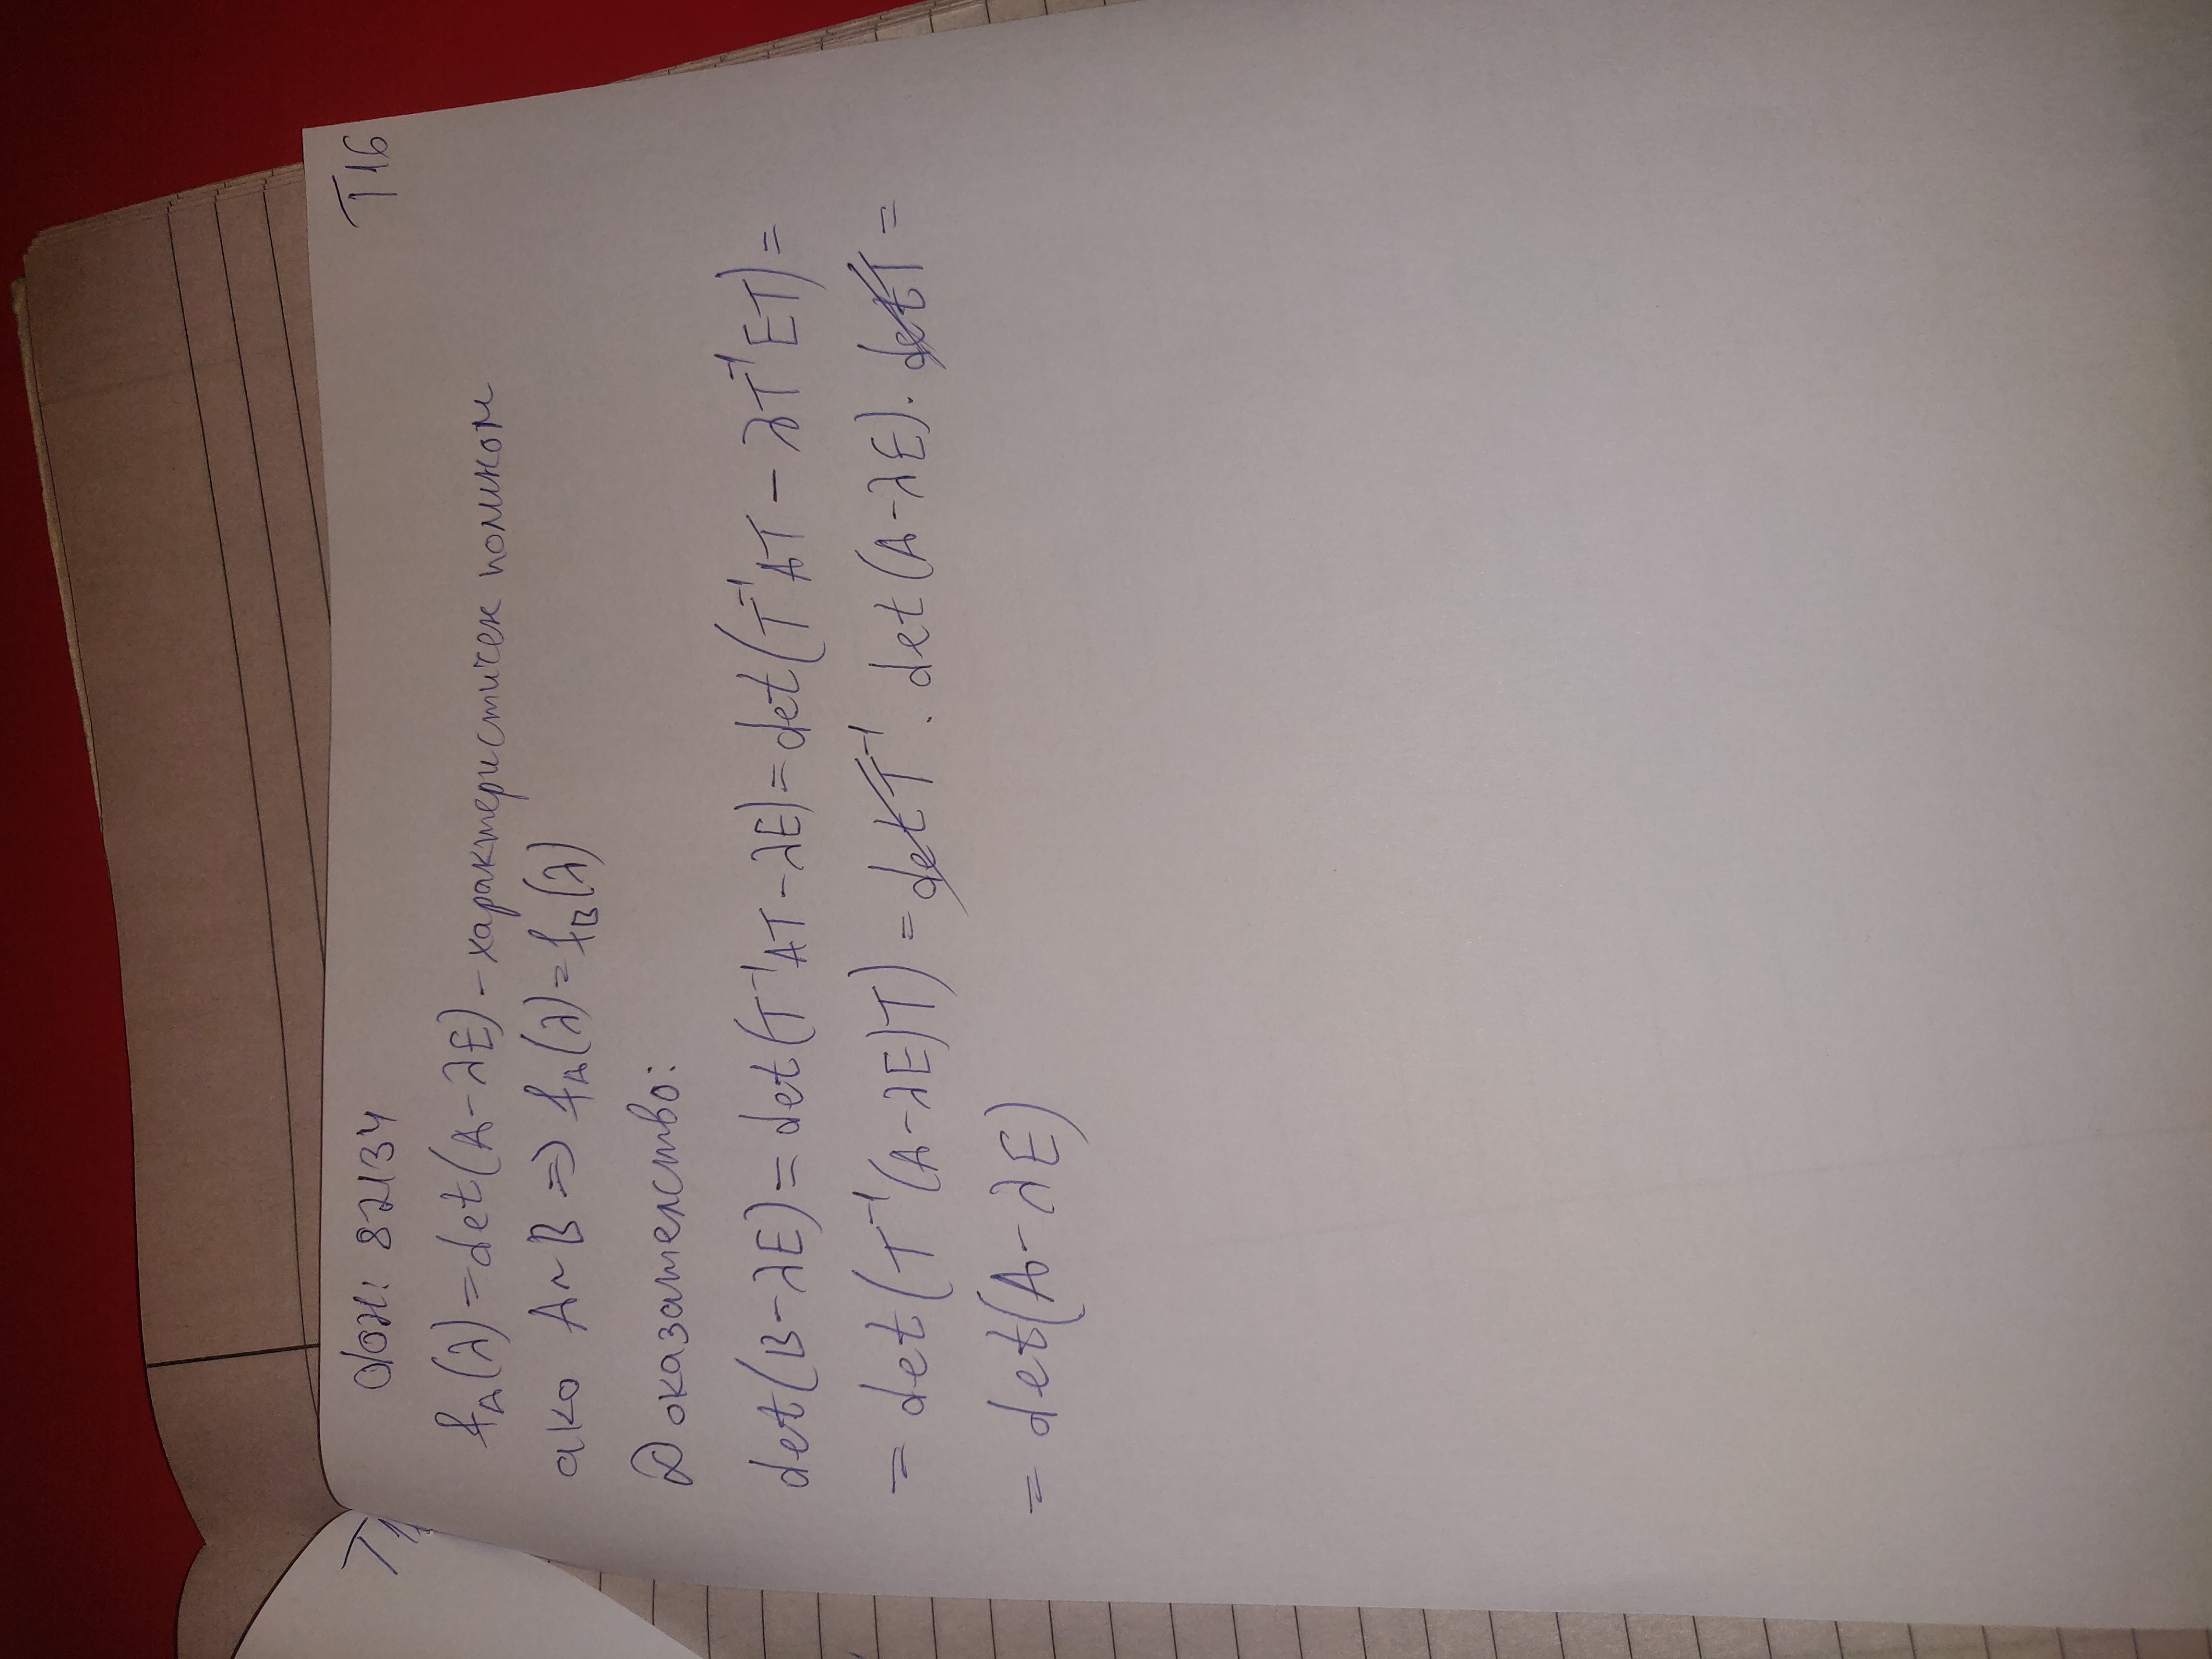 фн: 82134
T16
f_A(λ)=det(A-λE) - характеристичен полином
ако A~B => f_A(λ)=f_B(λ)
Доказателство:
det(B-λE)=det(T⁻¹AT-λE)=det(T⁻¹AT-λT⁻¹ET)=
=det(T⁻¹(A-λE)T)=detT⁻¹.det(A-λE).detT=
=det(A-λE)